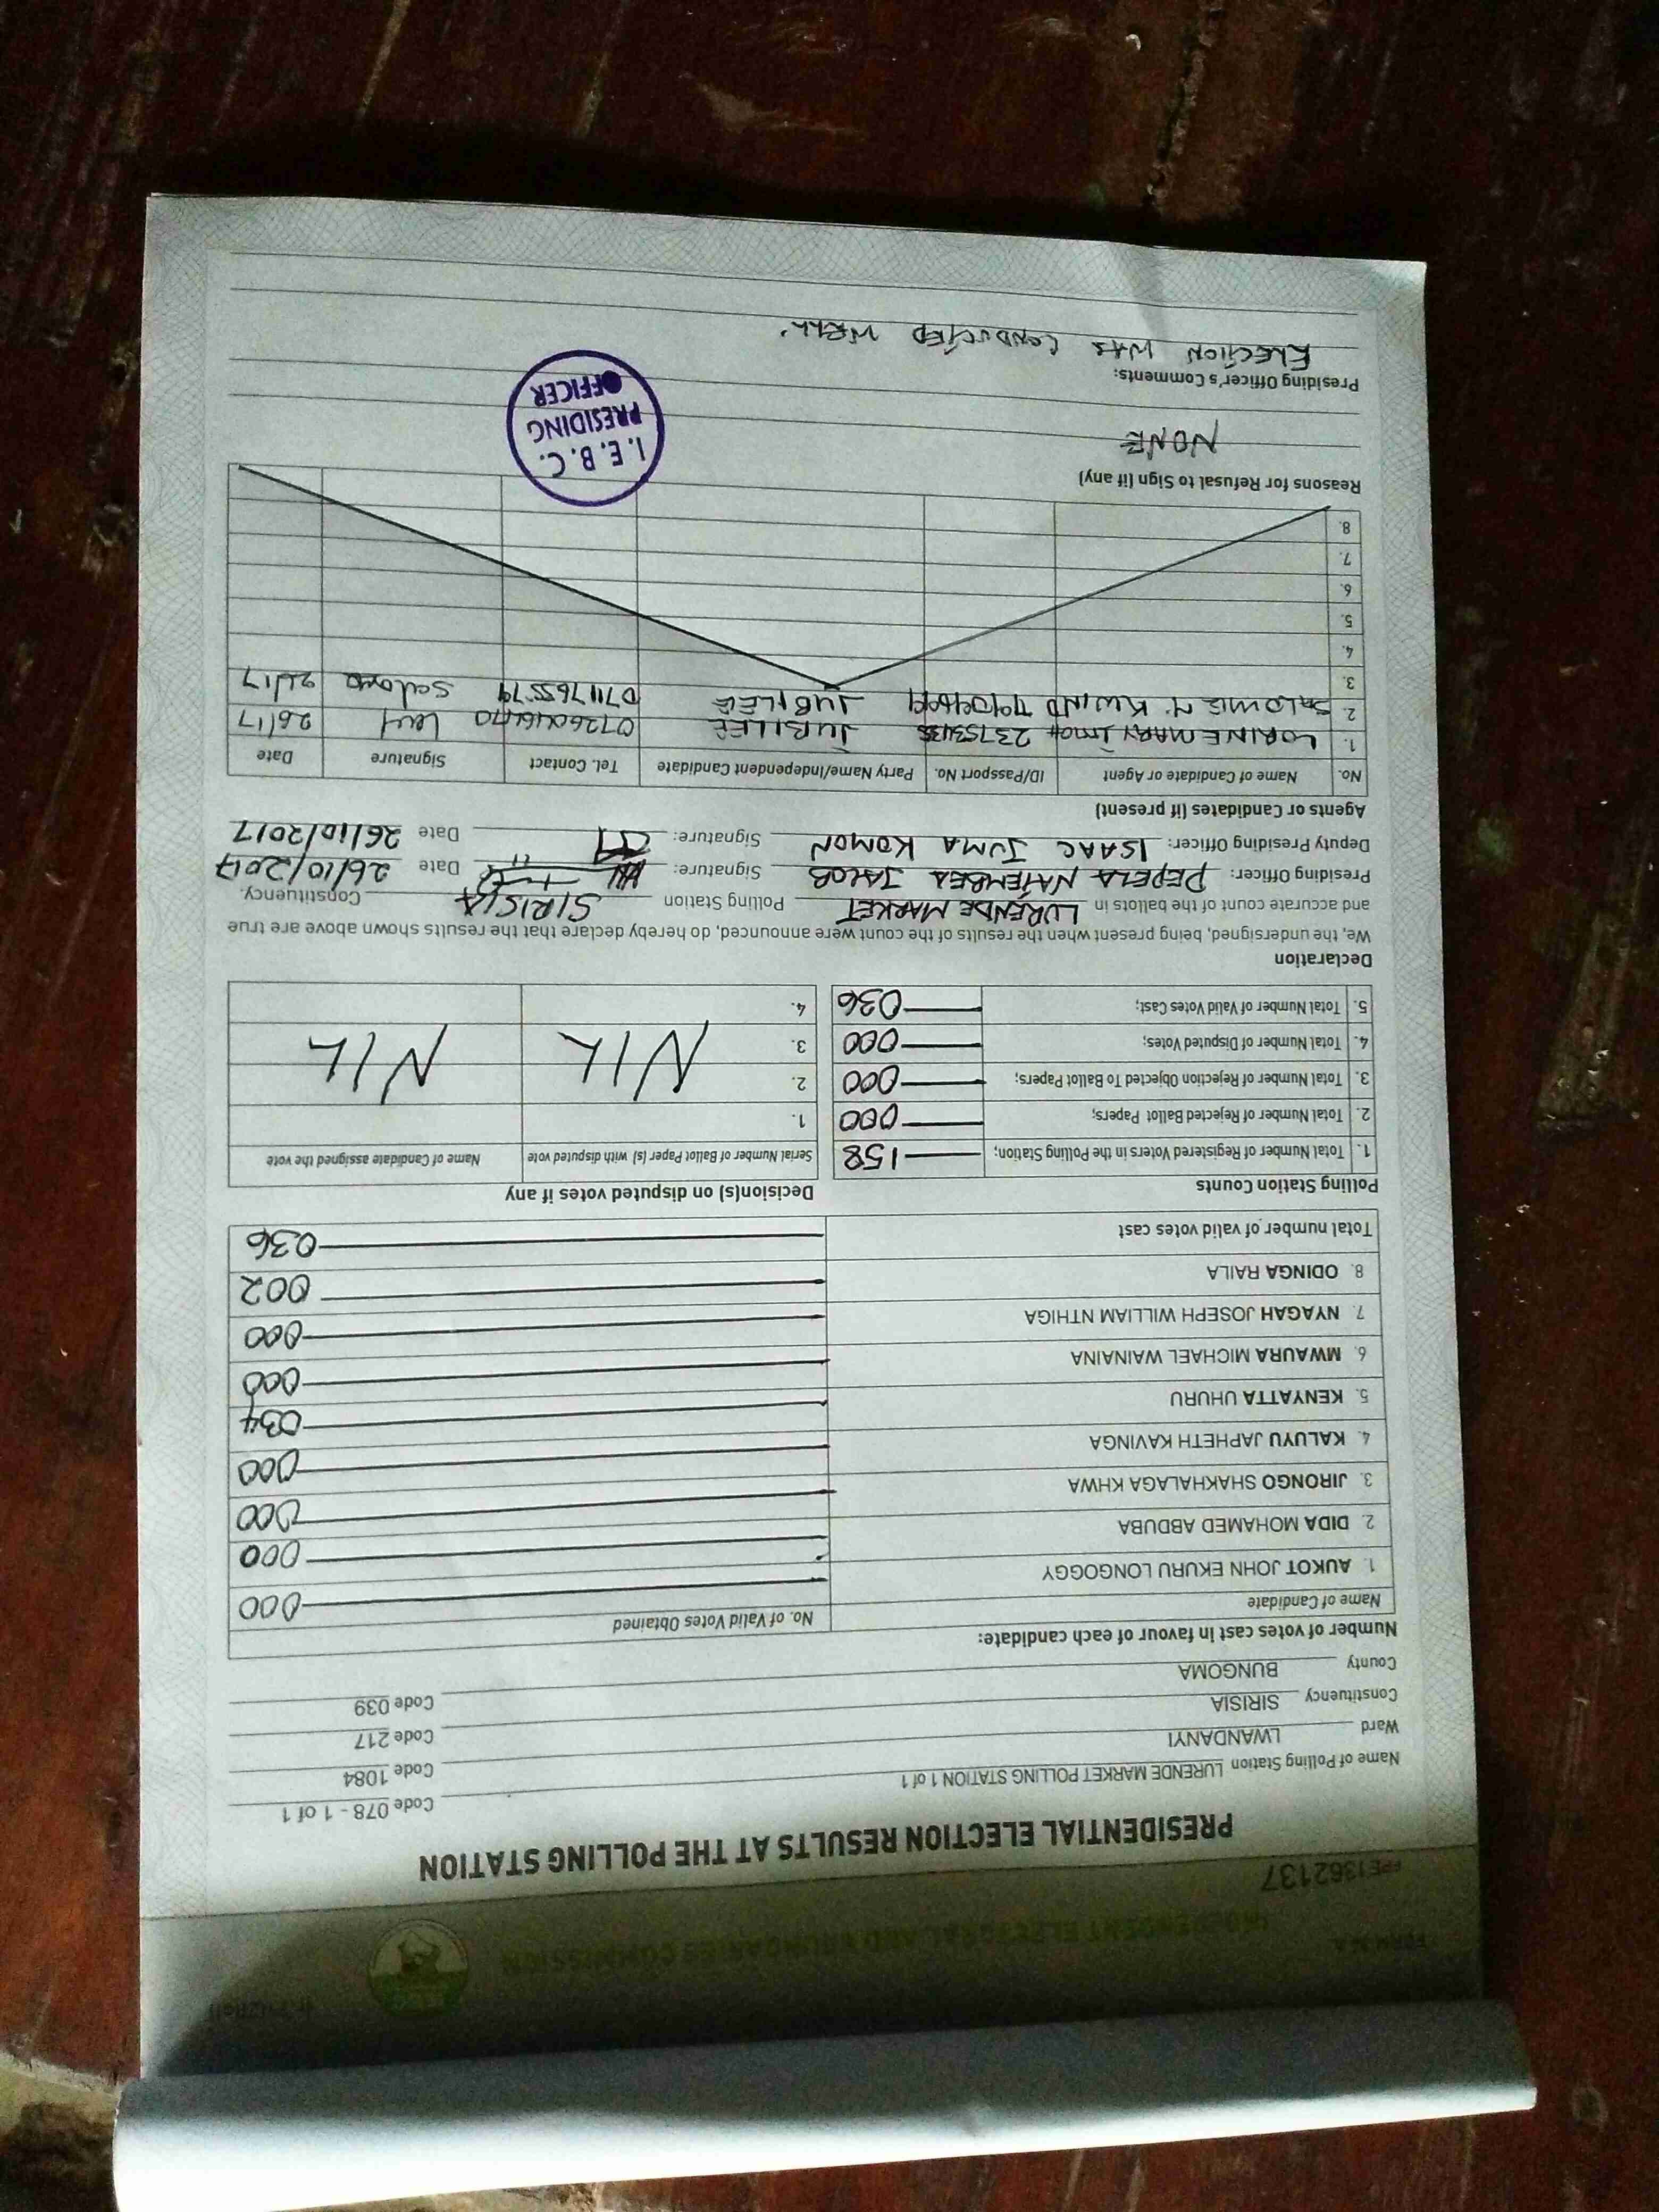 FORM 34A
INDEPENDENT ELECTORAL AND BOUNDARIES COMMISSION
1362137
PRESIDENTIAL ELECTION RESULTS AT THE POLLING STATION
Name of Polling Station LURENDE MARKET POLLING STATION 1 of 1 Code 078 - 1 of 1
Ward LWANDANYI Code 1084
Constituency SIRISIA Code 217
County BUNGOMA Code 039
Number of votes cast in favour of each candidate:
Name of Candidate No. of Valid Votes Obtained
1. AUKOT JOHN EKURU LONGOGGY 000
2. DIDA MOHAMED ABDUBA 000
3. JIRONGO SHAKHALAGA KHWA 000
4. KALUYU JAPHETH KAVINGA 000
5. KENYATTA UHURU 034
6. MWAURA MICHAEL WAINAINA 000
7. NYAGAH JOSEPH WILLIAM NTHIGA 000
8. ODINGA RAILA 002
Total number of valid votes cast 036
Polling Station Counts
1. Total Number of Registered Voters in the Polling Station; 158
2. Total Number of Rejected Ballot Papers; 000
3. Total Number of Rejection Objected To Ballot Papers; 000
4. Total Number of Disputed Votes; 000
5. Total Number of Valid Votes Cast; 036
Decision(s) on disputed votes if any
Serial Number of Ballot Paper (s) with disputed vote Name of Candidate assigned the vote
1.
2.
3. NIL NIL
4.
Declaration
We, the undersigned, being present when the results of the count were announced, do hereby declare that the results shown above are true
and accurate count of the ballots in LURENDE MARKET Polling Station SIRISIA Constituency.
Presiding Officer: PEPELA NATEMBEA JACOB Signature: Date 26/10/2017
Deputy Presiding Officer: ISAAC JUMA KOMON Signature: Date 26/10/2017
Agents or Candidates (if present)
No. Name of Candidate or Agent ID/Passport No. Party Name/Independent Candidate Tel. Contact Signature Date
1. LORINE MARY JUBILEE 26/17
2. SALOMIE N. JUBILEE 26/17
3.
4.
5.
6.
7.
8.
Reasons for Refusal to Sign (if any)
NONE
Presiding Officer's Comments:
ELECTION WAS CONDUCTED WELL.
I.E.B.C.
PRESIDING
OFFICER